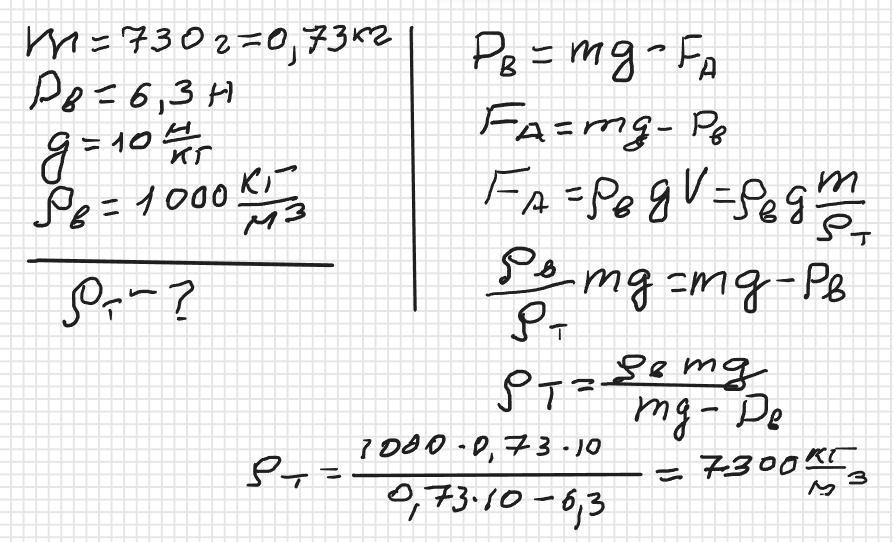 m = 730 г = 0,73 кг
P_в = 6,3 Н
g = 10 Н/кг
ρ_в = 1000 кг/м³
ρ_т - ?
P_в = mg - F_A
F_A = mg - P_в
F_A = ρ_в g V = ρ_в g m/ρ_т
ρ_в/ρ_т mg = mg - P_в
ρ_т = ρ_в mg / (mg - P_в)
ρ_т = 1000 · 0,73 · 10 / (0,73 · 10 - 6,3) = 7300 кг/м³